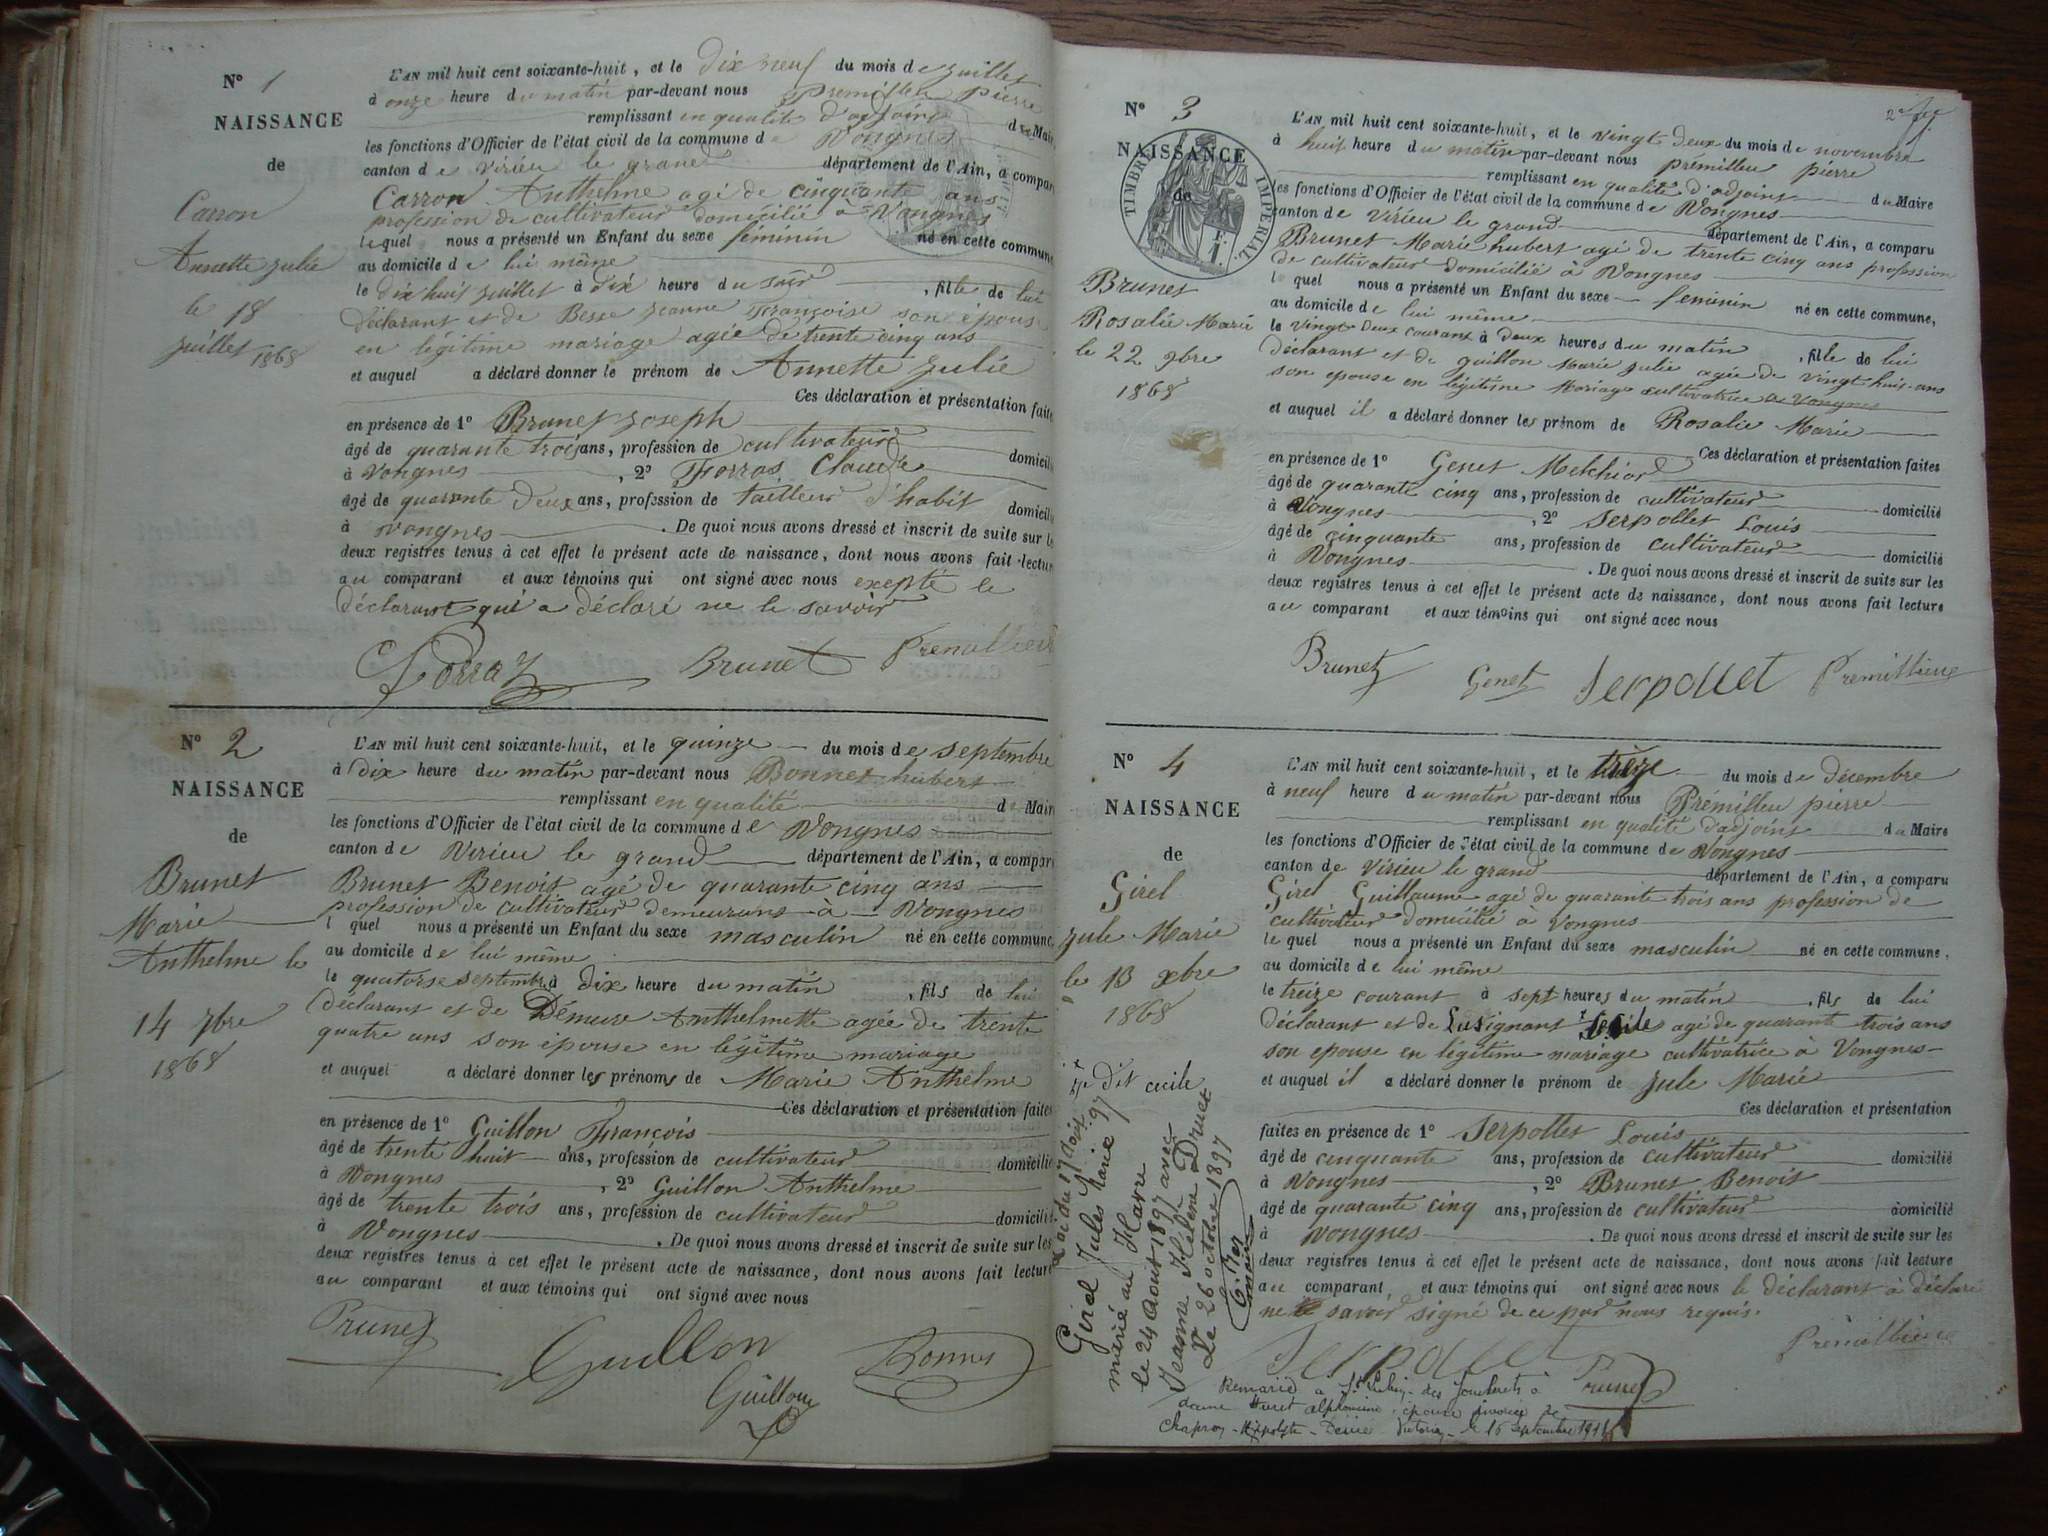 N° 1
NAISSANCE
de
Carron
Annette Julie
le 18
Juillet 1868
L'AN mil huit cent soixante-huit, et le dix neuf du mois de Juillet
à onze heure du matin par-devant nous Premillieu Pierre
remplissant en qualité d'adjoint du Maire
les fonctions d'Officier de l'état civil de la commune de Vongnes
canton de virieu le grand département de l'Ain, a comparu
Carron Anthelme agé de cinquante ans
profession de cultivateur domicilié à Vongnes
lequel nous a présenté un Enfant du sexe féminin né en cette commune
au domicile de lui même
le dix huit Juillet à dix heure du soir, fille de lui
déclarant et de Besse Jeanne Françoise son épouse
en légitime mariage agée de trente cinq ans
et auquel a déclaré donner le prénom de Annette Julie
Ces déclaration et présentation faites
en présence de 1° Brunet Joseph
âgé de quarante trois ans, profession de cultivateur domicilié
à Vongnes, 2° Porras Claude
âgé de quarante deux ans, profession de tailleur d'habit domicilié
à Vongnes. De quoi nous avons dressé et inscrit de suite sur les
deux registres tenus à cet effet le présent acte de naissance, dont nous avons fait lecture
au comparant et aux témoins qui ont signé avec nous exepté le
déclarant qui a déclaré ne le savoir
Porraz Brunet Premillieu
N° 2
NAISSANCE
de
Brunet
Marie
Anthelme le
14 7bre
1868
L'AN mil huit cent soixante-huit, et le quinze du mois de septembre
à dix heure du matin par-devant nous Bonnet hubert
remplissant en qualité du Maire
les fonctions d'Officier de l'état civil de la commune de Vongnes
canton de Virieu le grand département de l'Ain, a comparu
Brunet Benoit agé de quarante cinq ans
profession de cultivateur demeurant à Vongnes
l quel nous a présenté un Enfant du sexe masculin né en cette commune,
au domicile de lui même
le quatorse septembre à dix heure du matin, fils de lui
déclarant et de Démure Anthelmette agée de trente
quatre ans son épouse en légitime mariage
et auquel a déclaré donner les prénoms de Marie Anthelme
Ces déclaration et présentation faites
en présence de 1° Guillon François
âgé de trente huit ans, profession de cultivateur domicilié
à Vongnes, 2° Guillon Anthelme
âgé de trente trois ans, profession de cultivateur domicilié
à Vongnes. De quoi nous avons dressé et inscrit de suite sur les
deux registres tenus à cet effet le présent acte de naissance, dont nous avons fait lecture
au comparant et aux témoins qui ont signé avec nous
Brunet Guillon Bonnet
Guillon
N° 3
NAISSANCE
de
TIMBRE IMPERIAL
Brunet
Rosalie Marie
le 22 9bre
1868
L'AN mil huit cent soixante-huit, et le vingt deux du mois de novembre
à huit heure du matin par-devant nous prémillieu pierre
remplissant en qualité d'adjoint du Maire
les fonctions d'Officier de l'état civil de la commune de Vongnes
canton de virieu le grand département de l'Ain, a comparu
Brunet Marie hubert agé de trente cinq ans profession
de cultivateur domicilié à Vongnes
l quel nous a présenté un Enfant du sexe féminin né en cette commune,
au domicile de lui même
le vingt deux courant à deux heures du matin, fille de lui
déclarant et de guillon Marie Julie agée de vingt huit ans
son epouse en légitime Mariage cultivatrice à Vongnes
et auquel il a déclaré donner les prénom de Rosalie Marie
Ces déclaration et présentation faites
en présence de 1° Genet Melchior
âgé de quarante cinq ans, profession de cultivateur domicilié
à Vongnes, 2° Serpollet Louis
âgé de cinquante ans, profession de cultivateur domicilié
à Vongnes. De quoi nous avons dressé et inscrit de suite sur les
deux registres tenus à cet effet le présent acte de naissance, dont nous avons fait lecture
au comparant et aux témoins qui ont signé avec nous
Brunet Genet Serpollet Premillieu
N° 4
NAISSANCE
de
Girel
Jule Marie
le 13 xbre
1868
dit cecile
Girel Jules Marie
marié au Havre
le 24 Août 1897 avec
Jeanne Hélène Druet
Le 26 octobre 1897
L'AN mil huit cent soixante-huit, et le treize du mois de décembre
à neuf heure du matin par-devant nous Prémillieu pierre
remplissant en qualité d'adjoint du Maire
les fonctions d'Officier de l'état civil de la commune de Vongnes
canton de Virieu le grand département de l'Ain, a comparu
Girel Guillaume agé de quarante trois ans profession de
cultivateur domicilié à Vongnes
le quel nous a présenté un Enfant du sexe masculin né en cette commune,
au domicile de lui même
le treize courant à sept heures du matin, fils de lui
déclarant et de Lusignant agé de quarante trois ans
son epouse en légitime mariage cultivatrice à Vongnes
et auquel il a déclaré donner le prénom de Jule Marie
Ces déclaration et présentation
faites en présence de 1° Serpollet Louis
âgé de cinquante ans, profession de cultivateur domicilié
à Vongnes, 2° Brunet Benoit
âgé de quarante cinq ans, profession de cultivateur domicilié
à Vongnes. De quoi nous avons dressé et inscrit de suite sur les
deux registres tenus à cet effet le présent acte de naissance, dont nous avons fait lecture
au comparant, et aux témoins qui ont signé avec nous le déclarant à déclaré
ne le savoir signé de ce par nous requis.
Serpollet Brunet Premillieu
Remarié à St Aubin des
dame Huret alphonsine épouse divorcée de
Chapron Hippolyte Désiré Victorien le 16 septembre